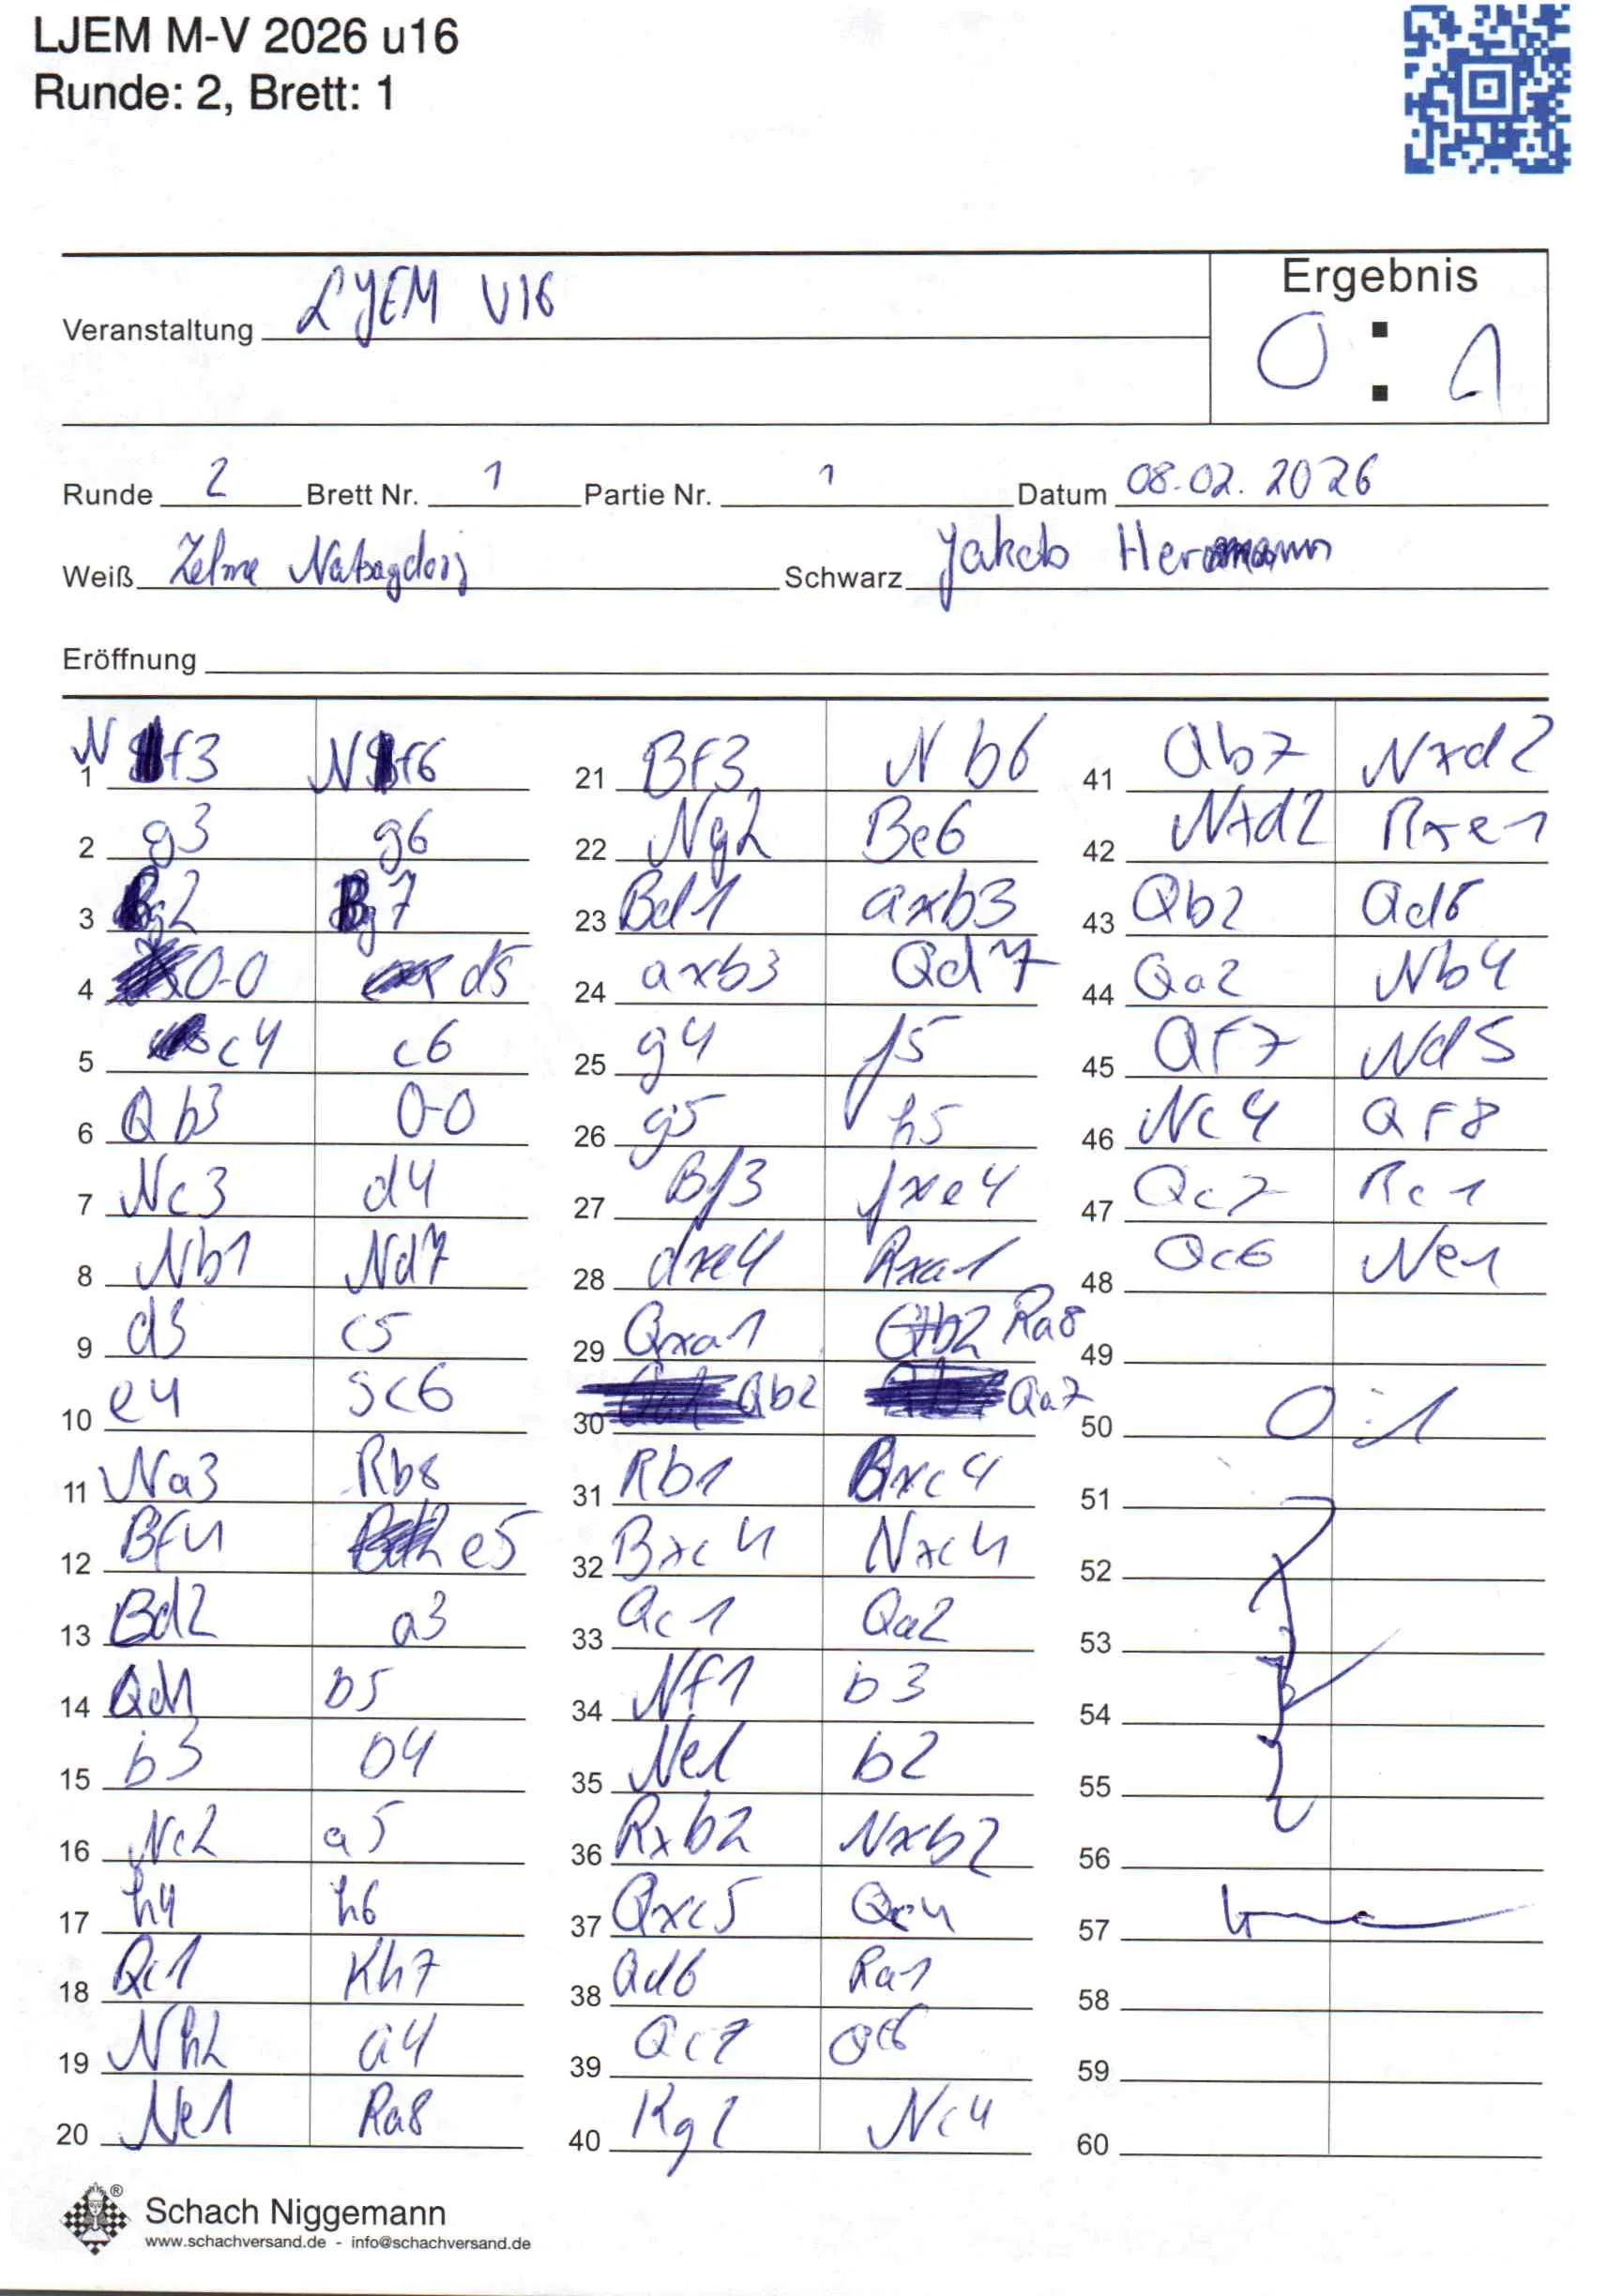 LJEM M-V 2026 u16
Runde: 2, Brett: 1
Ergebnis
Veranstaltung LJEM U16
0 : 1
Runde 2 Brett Nr. 1 Partie Nr. 1 Datum 08.02.2026
Weiß Schwarz Jakob Hermann
Eröffnung
1 Nf3 Nf6
2 g3 g6
3 Bg2 Bg7
4 0-0 d5
5 c4 c6
6 Qb3 0-0
7 Nc3 d4
8 Nb1 Nd7
9 d3 c5
10 e4 Sc6
11 Na3 Rb8
12 Bf4 e5
13 Bd2 a3
14 Qd1 b5
15 b3 b4
16 Nc2 a5
17 h4 h6
18 Qc1 Kh7
19 Nh2 a4
20 Ne1 Ra8
21 Bf3 Nb6
22 Ng2 Be6
23 Bd1 axb3
24 axb3 Qd7
25 g4 f5
26 g5 h5
27 Bf3 fxe4
28 dxe4 Rxa1
29 Qxa1 Ra8
30 Qb2 Qa7
31 Rb1 Bxc4
32 Bxc4 Nxc4
33 Qc1 Qa2
34 Nf1 b3
35 Ne1 b2
36 Rxb2 Nxb2
37 Qxc5 Qc4
38 Qd6 Ra1
39 Qc7
40 Kg2 Nc4
41 Qb7 Nxd2
42 Nxd2 Rxe1
43 Qb2 Qd6
44 Qa2 Nb4
45 Qf7 Nd5
46 Nc4 Qf8
47 Qc7 Rc1
48 Qc6 Ne1
49
50 0:1
51
52
53
54
55
56
57
58
59
60
Schach Niggemann
www.schachversand.de - info@schachversand.de